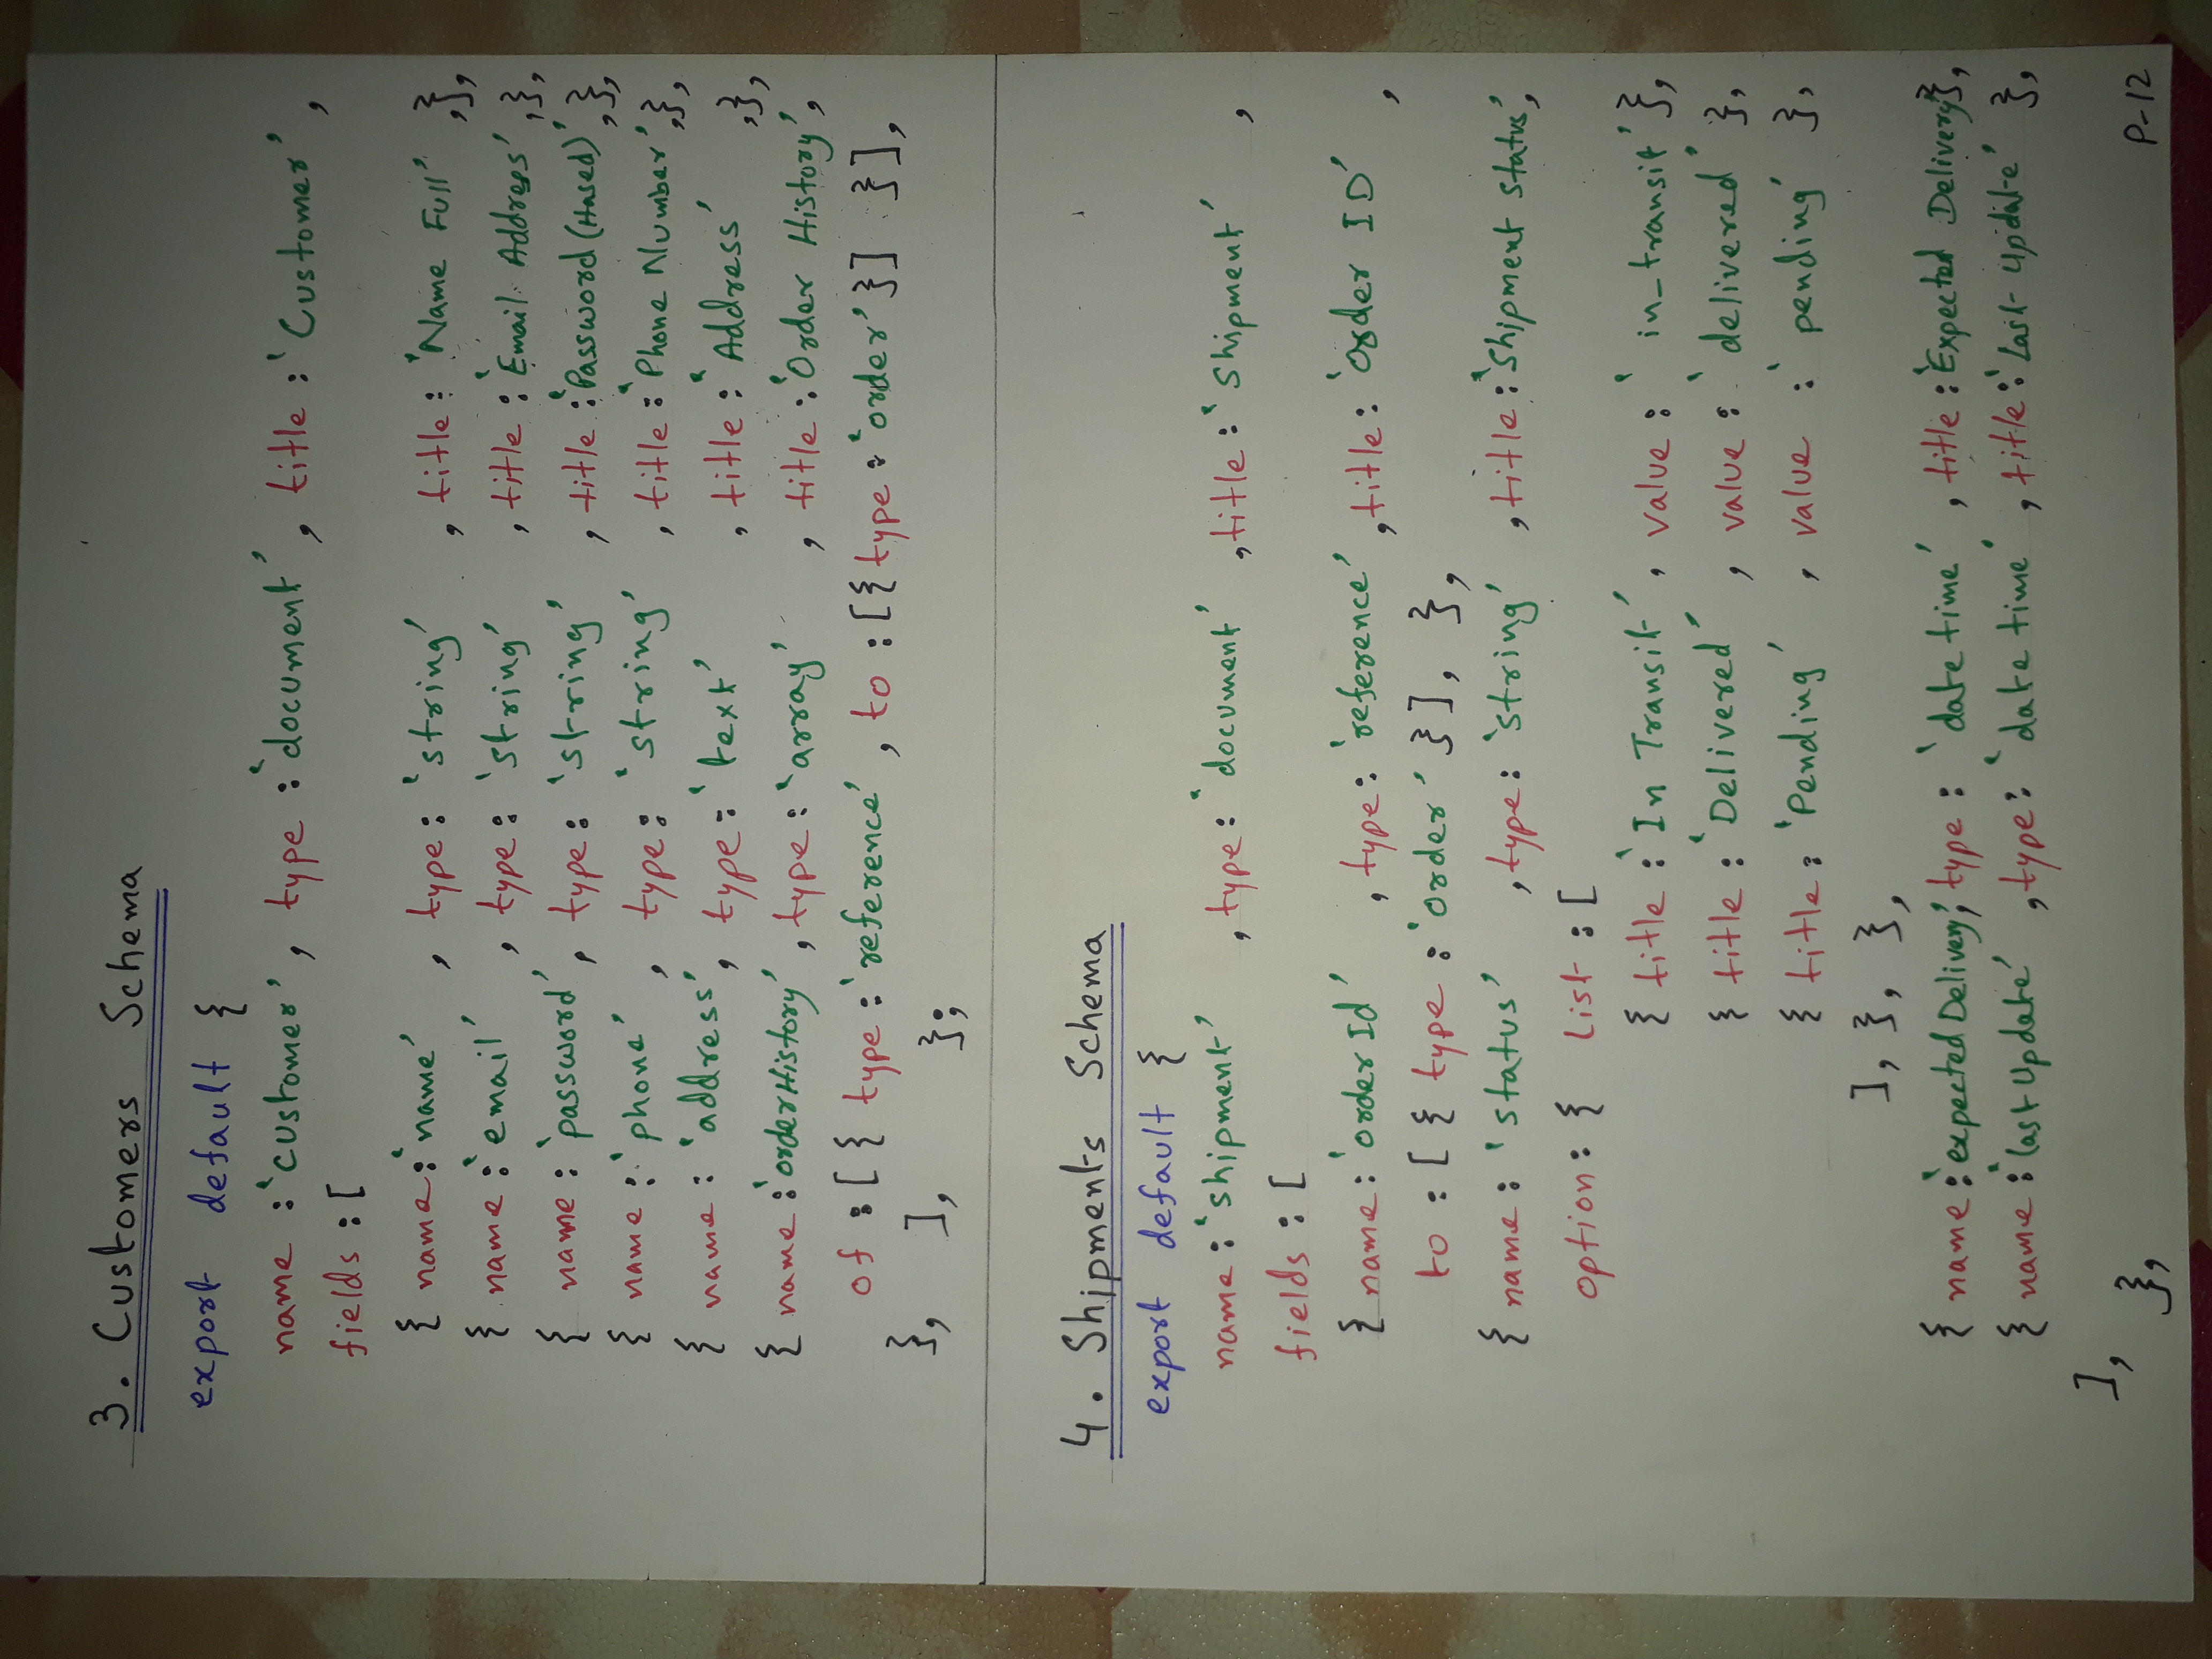 3. Customers Schema
export default {
name : 'customer', type : 'document', title : 'Customer',
fields : [
{ name : 'name' , type : 'string' , title : 'Name Full' ,},
{ name : 'email' , type : 'string' , title : 'Email Address' ,},
{ name : 'password', type : 'string' , title : 'Password (Hased)' ,},
{ name : 'phone' , type : 'string' , title : 'Phone Number' ,},
{ name : 'address', type : 'text' , title : 'Address' ,},
{ name : 'orderHistory', type : 'array' , title : 'Order History',
of : [ { type : 'reference', to : [{ type : 'order' }] }],
}, ], };
4. Shipments Schema
export default {
name : 'shipment' , type : 'document' , title : 'Shipment' ,
fields : [
{ name : 'order Id' , type : 'reference' , title : 'Order ID' ,
to : [ { type : 'order' }], },
{ name : 'status' , type : 'string' , title : 'Shipment status',
option : { list : [
{ title : 'In Transit' , value : 'in_transit' },
{ title : 'Delivered' , value : 'delivered' },
{ title : 'Pending' , value : 'pending' },
], }, },
{ name : 'expected Delivery', type : 'date time' , title : 'Expected Delivery'},
{ name : 'last Update' , type : 'date time' , title : 'Last Update' },
],
},
P-12